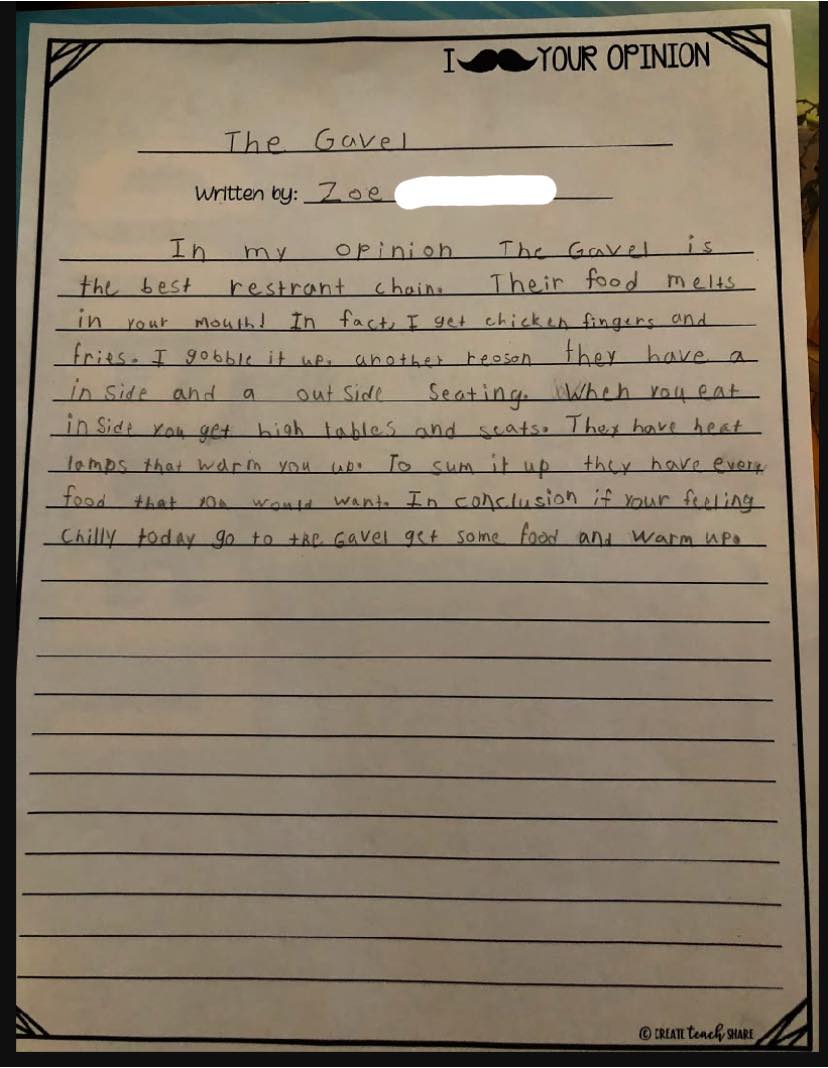 I YOUR OPINION
The Gavel
Written by: Zoe
In my opinion The Gavel is
the best restrant chain. Their food melts
in your mouth! In fact, I get chicken fingers and
fries. I gobble it up. another reason they have a
in side and a out side seating. When you eat
in side you get high tables and seats. They have heat
lamps that warm you up. To sum it up they have every
food that you would want. In conclusion if your feeling
chilly today go to the Gavel get some food and warm up.
© CREATE teach SHARE